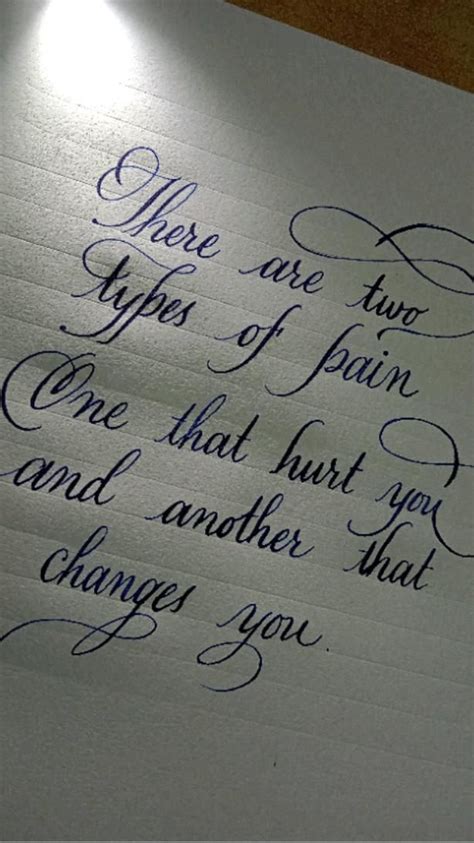 There are two
types of pain
One that hurt you
and another that
changes you.